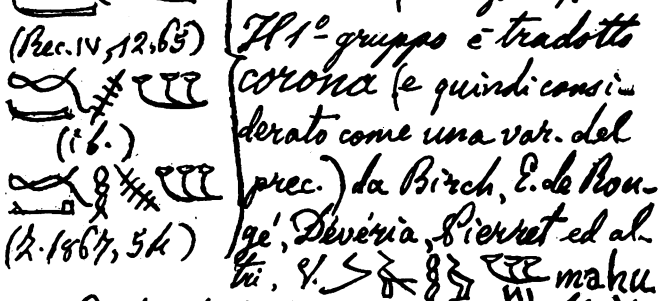 (Rec. IV, 12, 65)
(ib.)
(Z. 1867, 54)
Il 1º gruppo è tradotto
corona (e quindi consi-
derato come una var. del
prec.) da Birch, E. de Rou-
gé, Dévéria, Pierret ed al-
tri, V. mahu